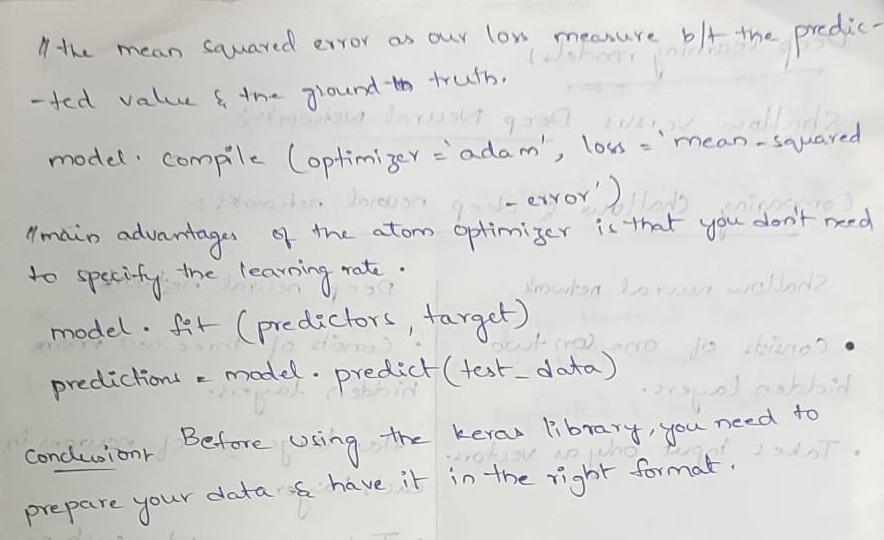 // the mean squared error as our loss measure b/t the predic-
-ted value & the ground truth.
model. compile (optimizer = 'adam', loss = 'mean-squared
-error')
// main advantages of the atom optimizer is that you don't need
to specify the learning rate.
model. fit (predictors, target)
predictions = model. predict (test_data)
Conclusion: Before using the keras library, you need to
prepare your data & have it in the right format.